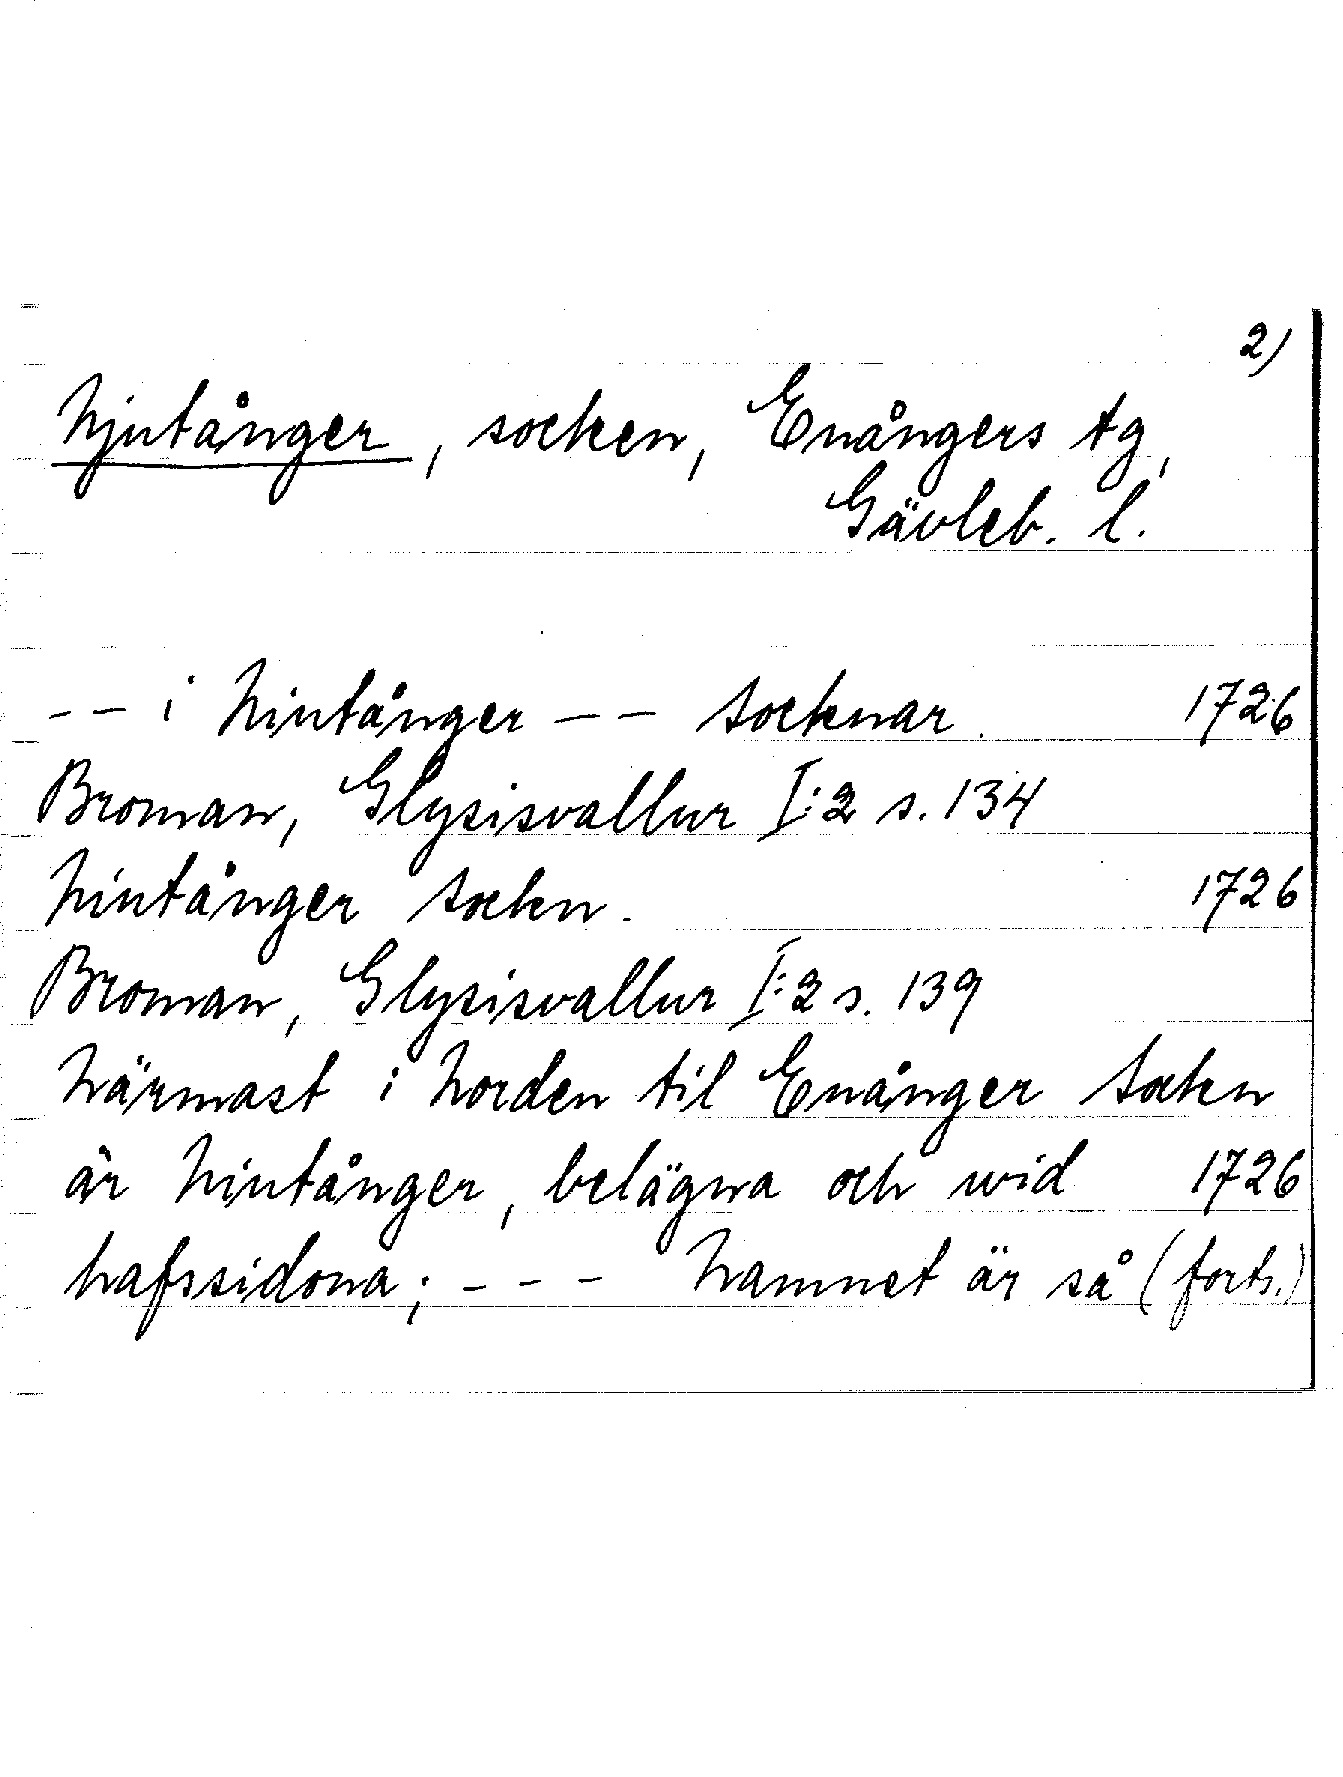 2)
Njutånger, socken, Enångers tg,
Gävleb. l.
-- i Niutånger -- Socknar. 1726
Broman, Glysisvallur I:2 s. 134
Niutånger Sockn. 1726
Broman, Glysisvallur I:2 s. 139
Närmast i Norden til Enånger Sockn
är Niutånger, belägna och wid 1726
hafssidona; --- Namnet är så (forts.)